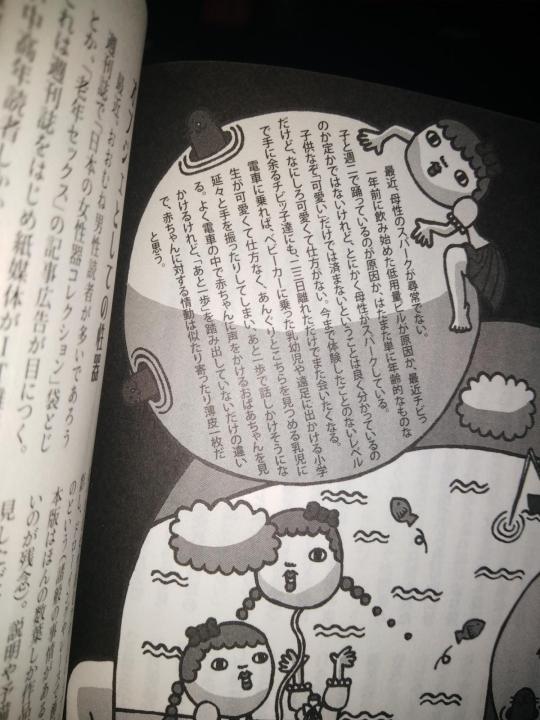 最近、母性のスパークが尋常でない。
一年前に飲み始めた低用量ピルが原因か、最近チビっ
子と週二で踊っているのが原因か、はたまた単に年齢的なものな
のか定かではないけれど、とにかく母性がスパークしている。
子供なぞ「可愛い」だけでは済まないということは良く分かっているの
だけど、なにしろ可愛くて仕方がない。今まで体験したことのないレベル
で手に余るチビッ子達にも、二三日離れただけでまた会いたくなる。
電車に乗れば、ベビーカーに乗った乳幼児や遠足に出かける小学
生が可愛くて仕方なく、あんぐりとこちらを見つめる乳児に
延々と手を振ったりしてしまい、あと一歩で話しかけそうにな
る。よく電車の中で赤ちゃんに声をかけるおばあちゃんを見
かけるけれど、「あと一歩」を踏み出していないだけの違い
で、赤ちゃんに対する情動は似たり寄ったり薄皮一枚だ
と思う。
としての性器
最近、おおむね男性読者が多いであろう
週刊誌で「日本の女性器コレクション」袋とじ
とか、「老年セックス」の記事広告が目につく。
これは週刊誌をはじめ紙媒体が
中高年読者
本版はほんの数葉しか作品
いのが残念)。説明や矛盾